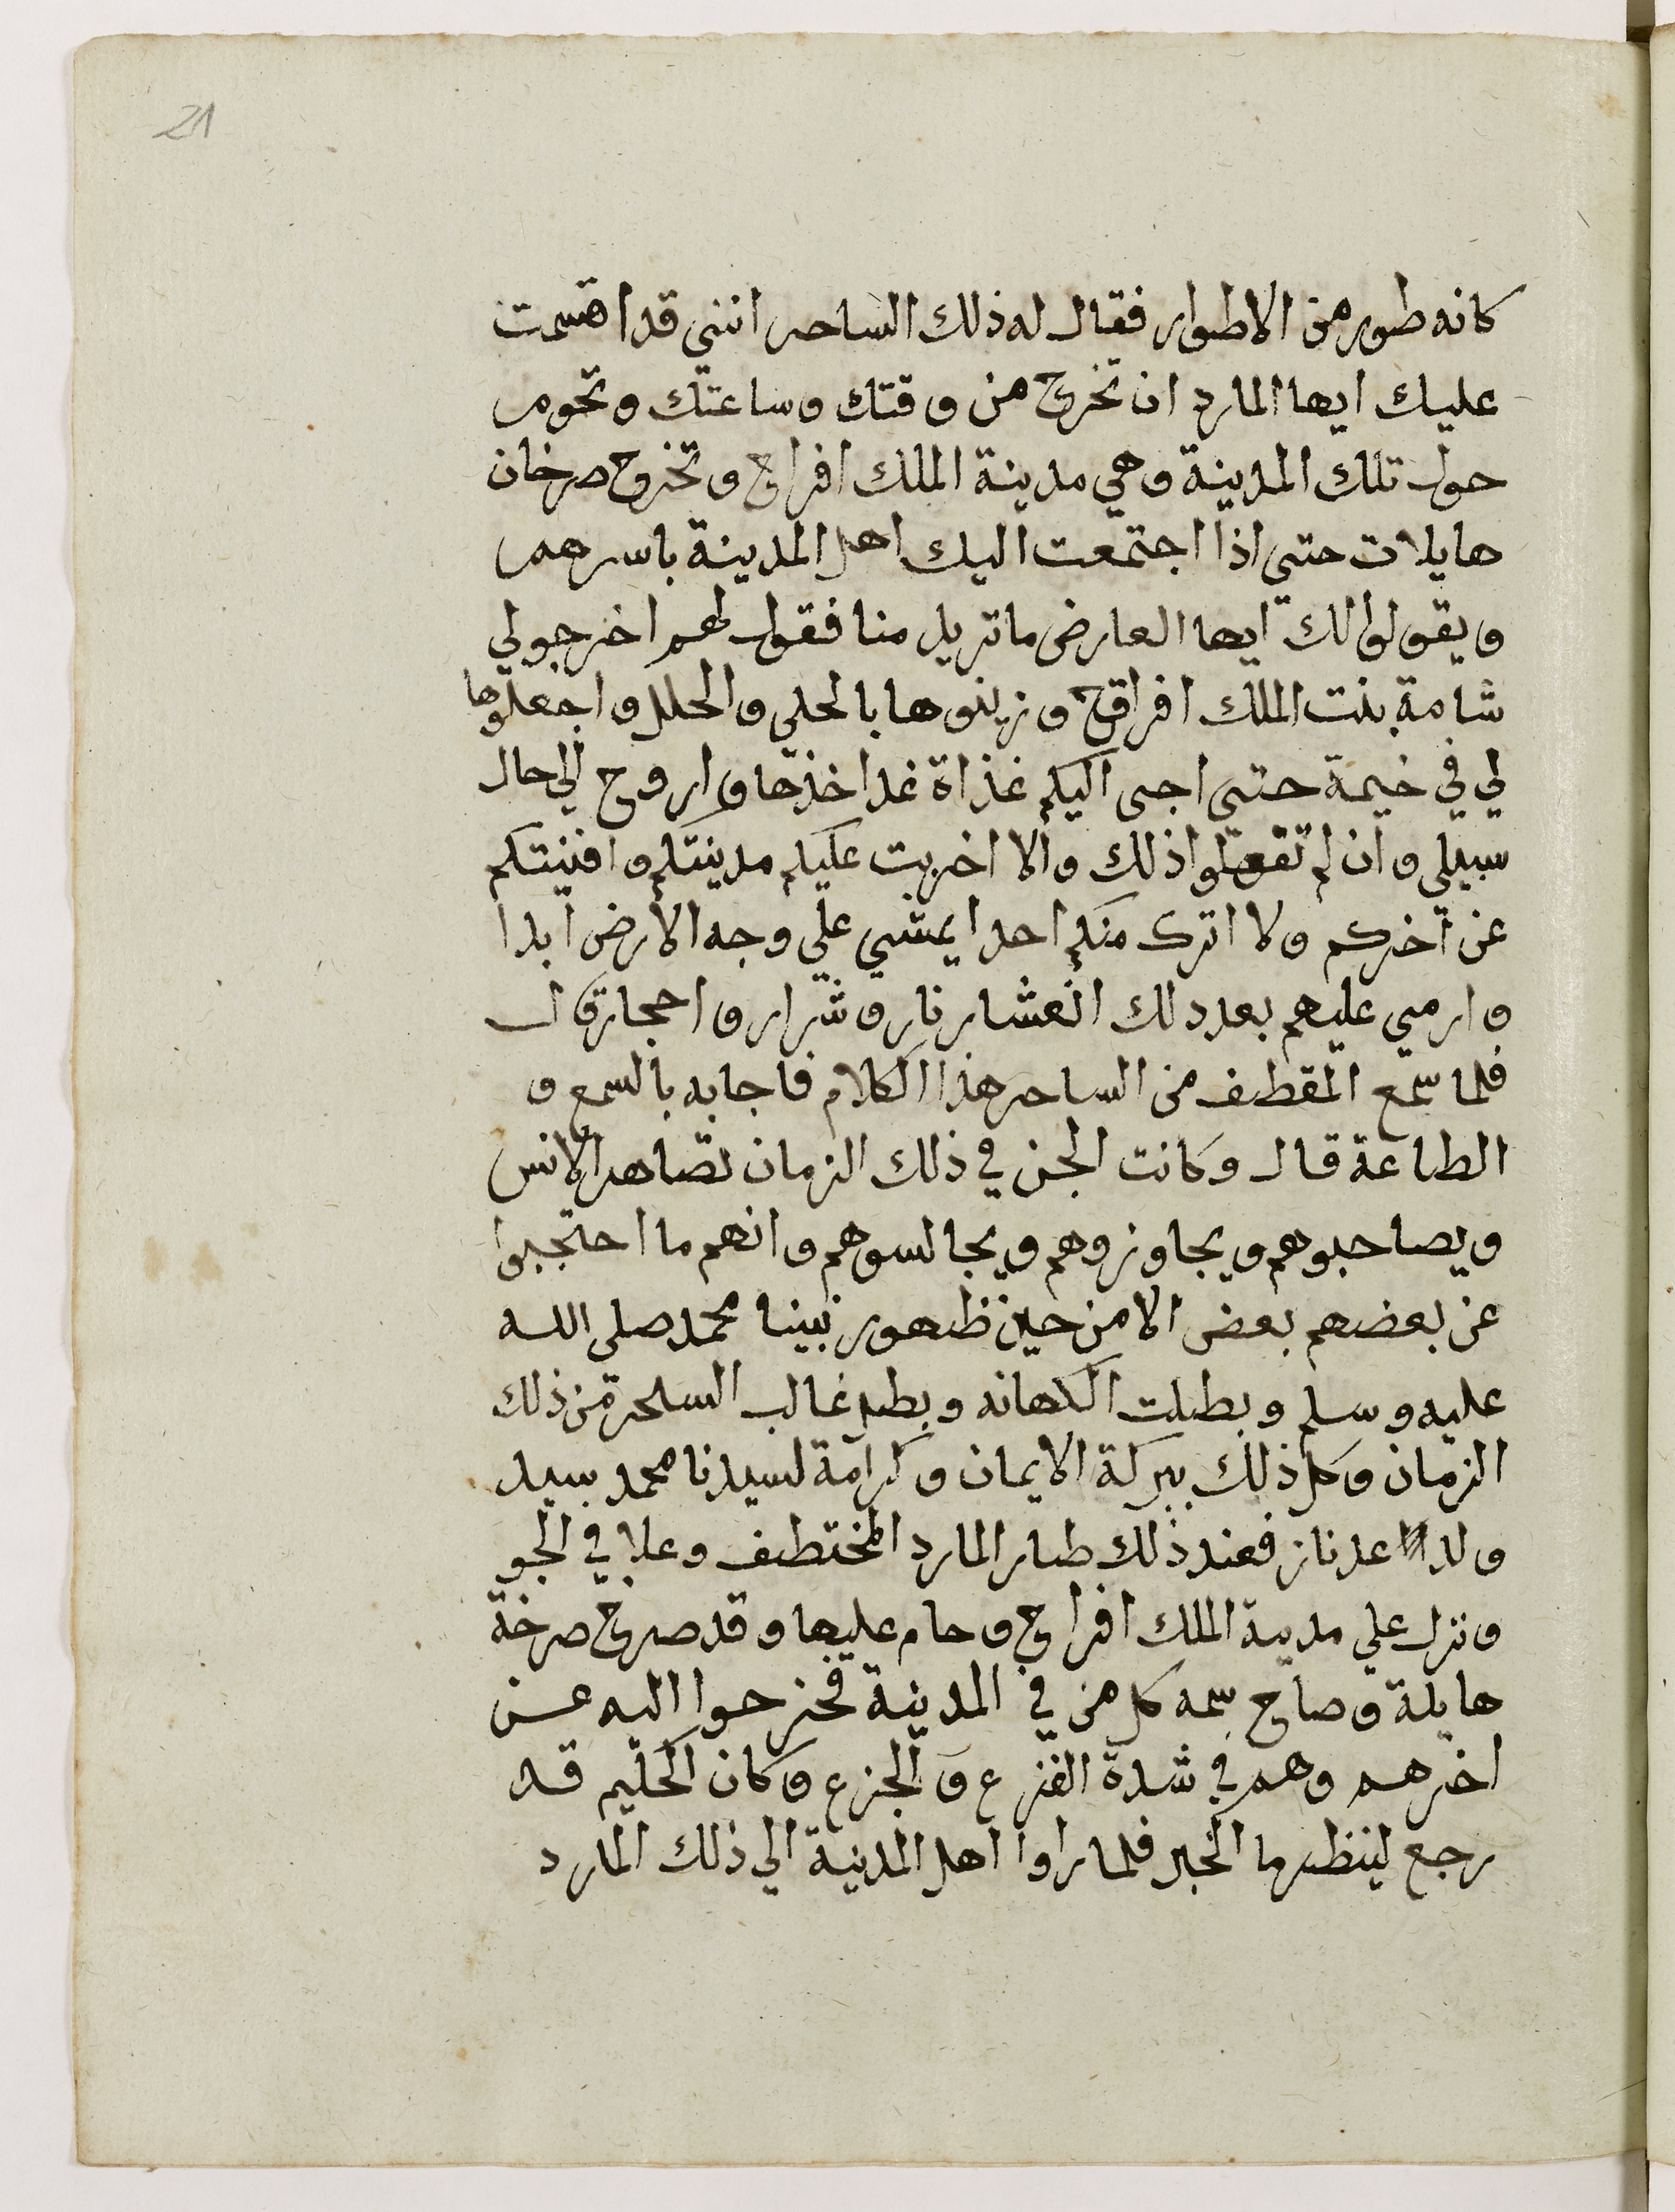 21
كانه طور من الاطوار فقال له ذلك الساحر انني قد اقسمت
عليك ايها المارد ان تخرج من وقتك وساعتك وتحوم
حول تلك المدينة وهي مدينة الملك افراح وتخرج صرخان
هايلات حتي اذا اجتمعت اليك اهل المدينة باسرهم
ويقولوا لك ايها العارض ما تريد منا فقول لهم اخرجولي
شامة بنت الملك افراح وزينوها بالحلي والحلل واجعلوها
لي في خيمة حتي اجي اليكم غذاة غد اخذها واروح الي حال
سبيلي وان لم تفعلوا ذلك والا اخربت عليكم مدينتكم وافنيتكم
عن آخركم ولا اترك منكم احدا يمشي علي وجه الارض ابدا
وارمي عليهم بعد دلك العشار نار وشرار واحجار قال
فلما سمع المقطف من الساحر هذا الكلام فاجابه بالسمع و
الطاعة قال وكانت الجن في ذلك الزمان تضاهد الانس
ويصاحبوهم ويجاوزوهم ويجالسوهم وانهم ما احتجبوا
عن بعضهم بعض الا من حين ظهور نبينا محمد صلى الله
عليه وسلم وبطلت الكهانه وبطل غالب السحرة من ذلك
الزمان وكل ذلك ببركة الايمان وكرامة لسيدنا محمد سيد
ولد عدنان فعند ذلك طار المارد المختطف وعلا في الجو
ونزل علي مدينة الملك افراح وحام عليها وقد صرخ صرخة
هايلة وصاح سمه كل من في المدينة فخرجوا اليه عن
اخرهم وهم في شدة الفزع والجزع وكان الحكيم قد
رجع لينظر ما الخبر فلما راوا اهل المدينة الي ذلك المارد